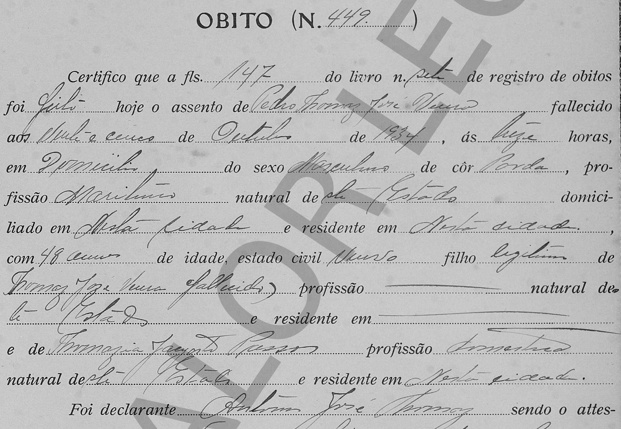 OBITO (N. 449.)
Certifico que a fls. 147 do livro n. sete de registro de obitos
foi feito hoje o assento de Pedro Thomaz José fallecido
aos vinte e cinco de Outubro de 1934, ás treze horas,
em Domicilio, do sexo Masculino de côr Parda, pro-
fissão Maritimo natural deste Estado domici-
liado em Nesta cidade e residente em Nesta cidade.,
com 48 annos de idade, estado civil Viuvo filho legitimo de
Thomaz José (fallecido) profissão natural des
te Estado e residente em
e de Passos profissão domestica
natural deste Estado e residente em Nesta cidade.
Foi declarante Antonio José Thomaz sendo o attes-
VALOR LEG